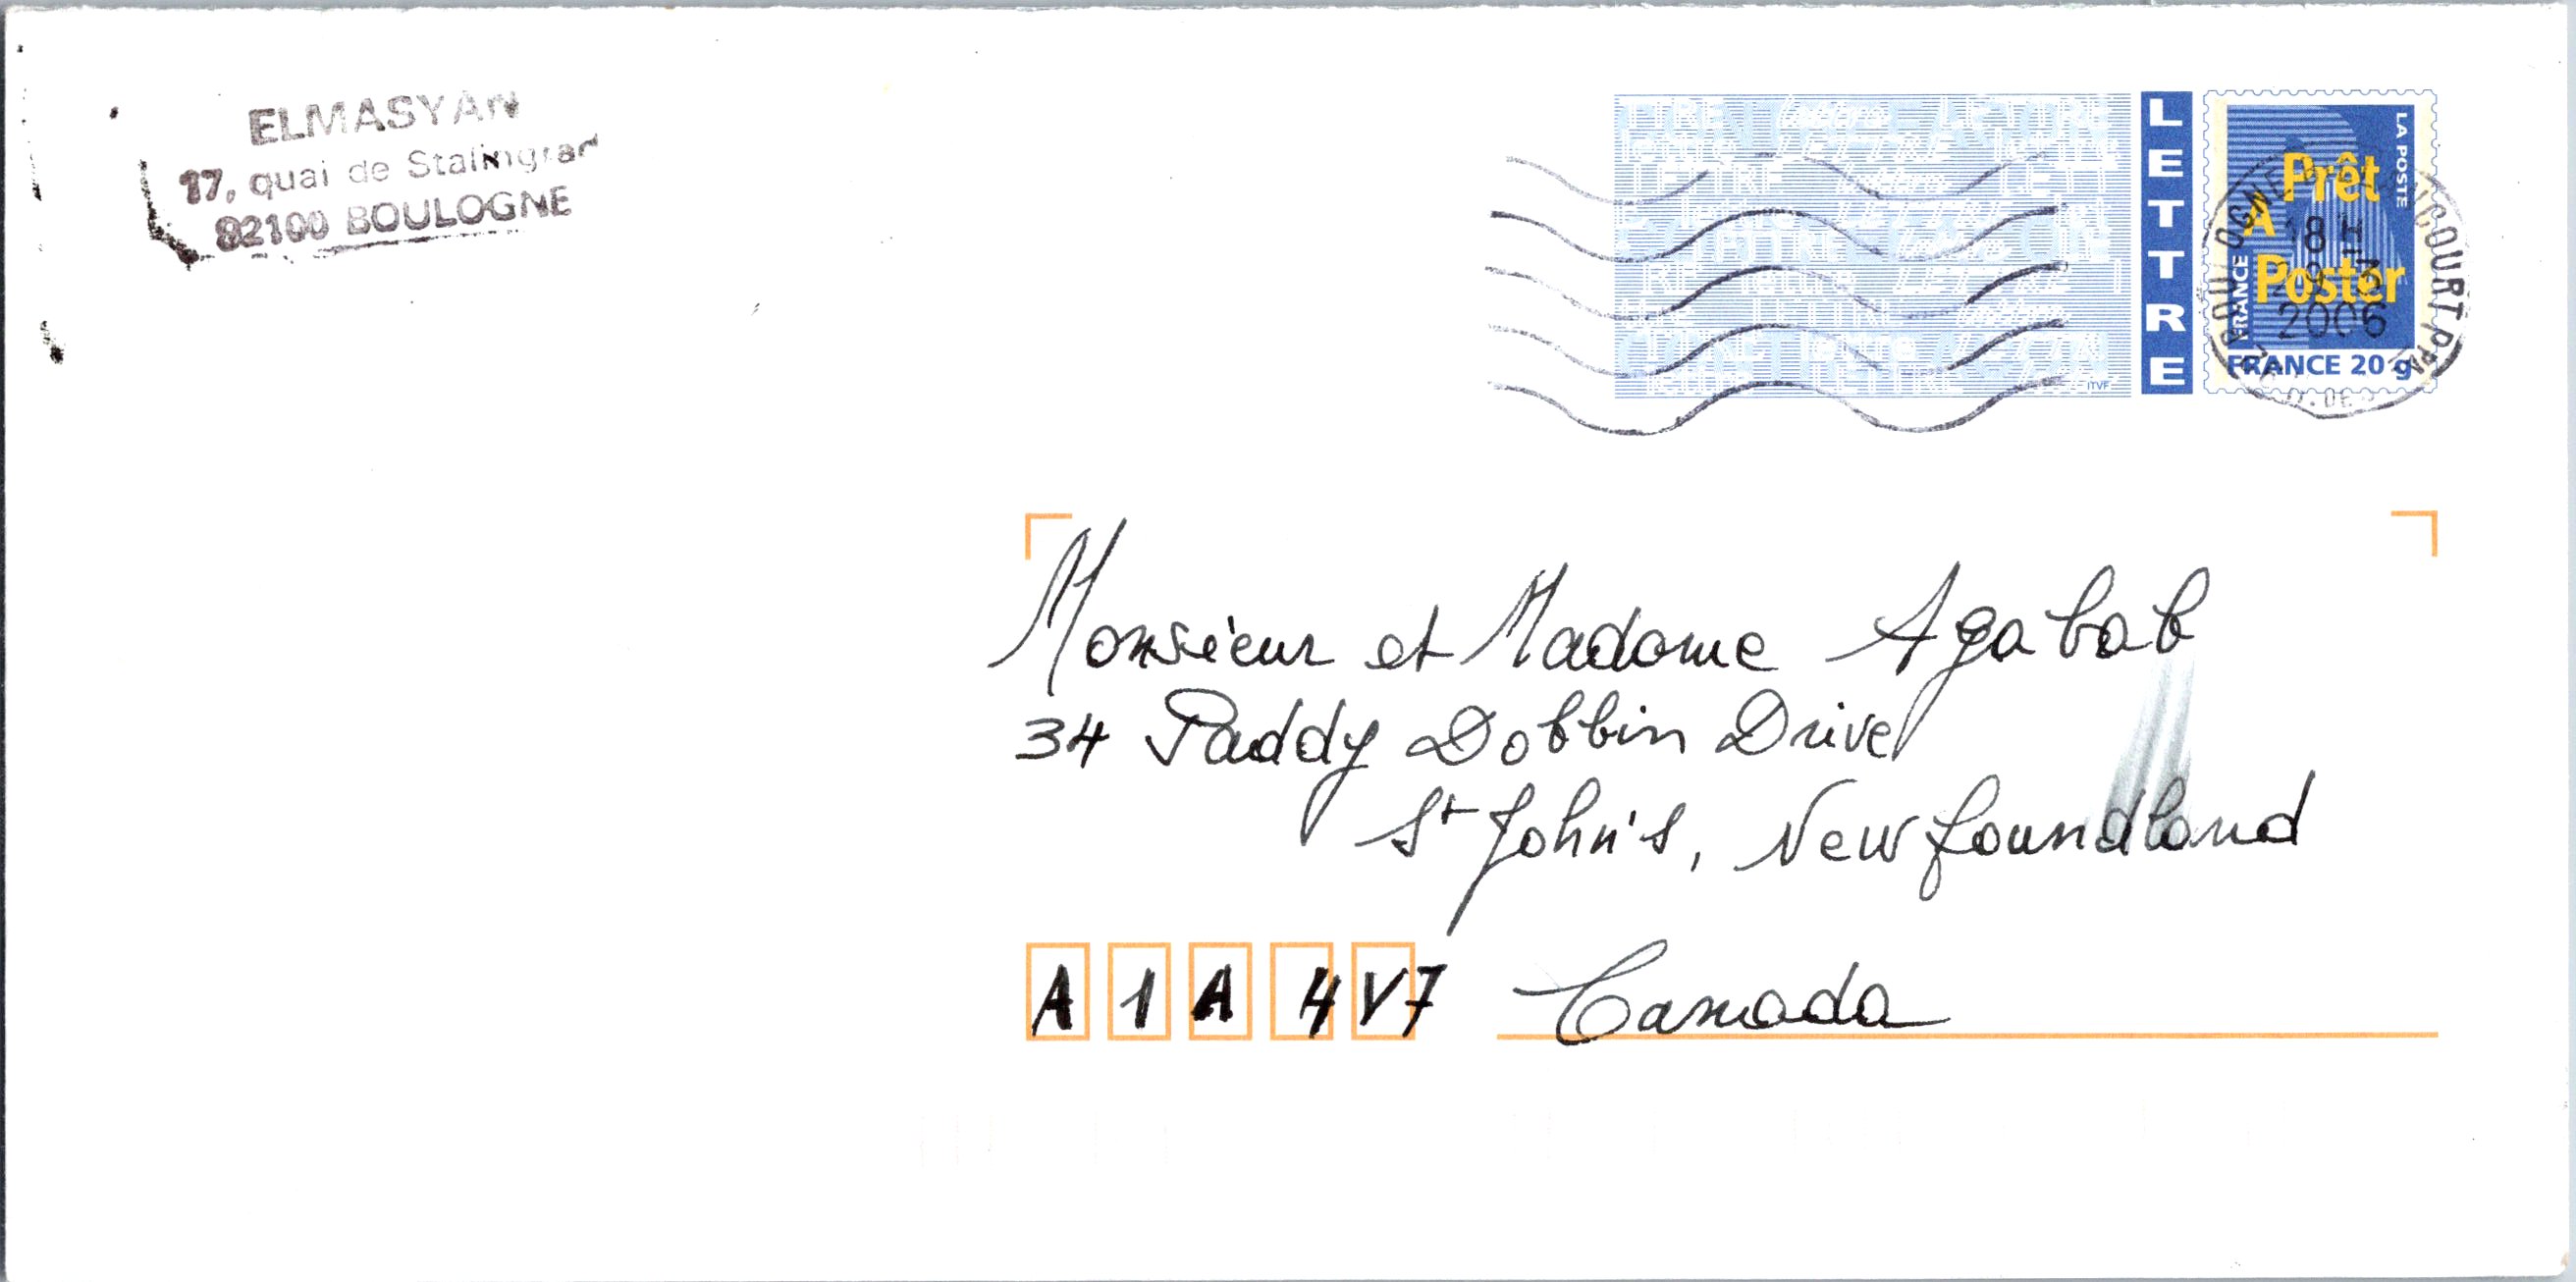 ELMASYAN
17, quai de Stalingrad
92100 BOULOGNE
LETTRE
LA POSTE
Prêt
A
Poster
FRANCE
FRANCE 20 g
ITVF
18 H
2006
Monsieur et Madame Agabab
34 Paddy Dobbin Drive
St John's, Newfoundland
A1A 4V7 Canada